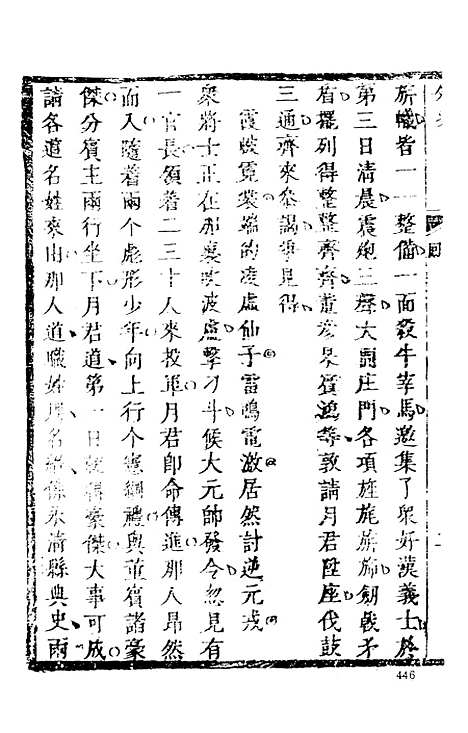 旂幟皆一一整備一面殺牛宰馬邀集了衆好漢義士於
第三日清晨震炮三聲大開庄門各項旌旄旂旆劒戟矛
盾擺列得整整齊齊董彥杲賓鴻等敦請月君陞座伐鼓
三通齊來叅謁爭見得
霞帔霓裳端的凌虛仙子雷鳴電激居然討逆元戎
衆將士正在那裏吹波盧擊刁斗候大元帥發令忽見有
一官長領着二三十人來投軍月君卽命傳進那人昂然
而入隨着兩个彪形少年向上行个庭叅禮與董賓諸豪
傑分賓主兩行坐下月君道第一日就得豪傑大事可成
請各道名姓來由那人道職姓名係永清縣典史兩
446